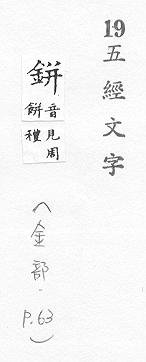 19五經文字
鉼
音餅
見周禮
(金部.P.63)